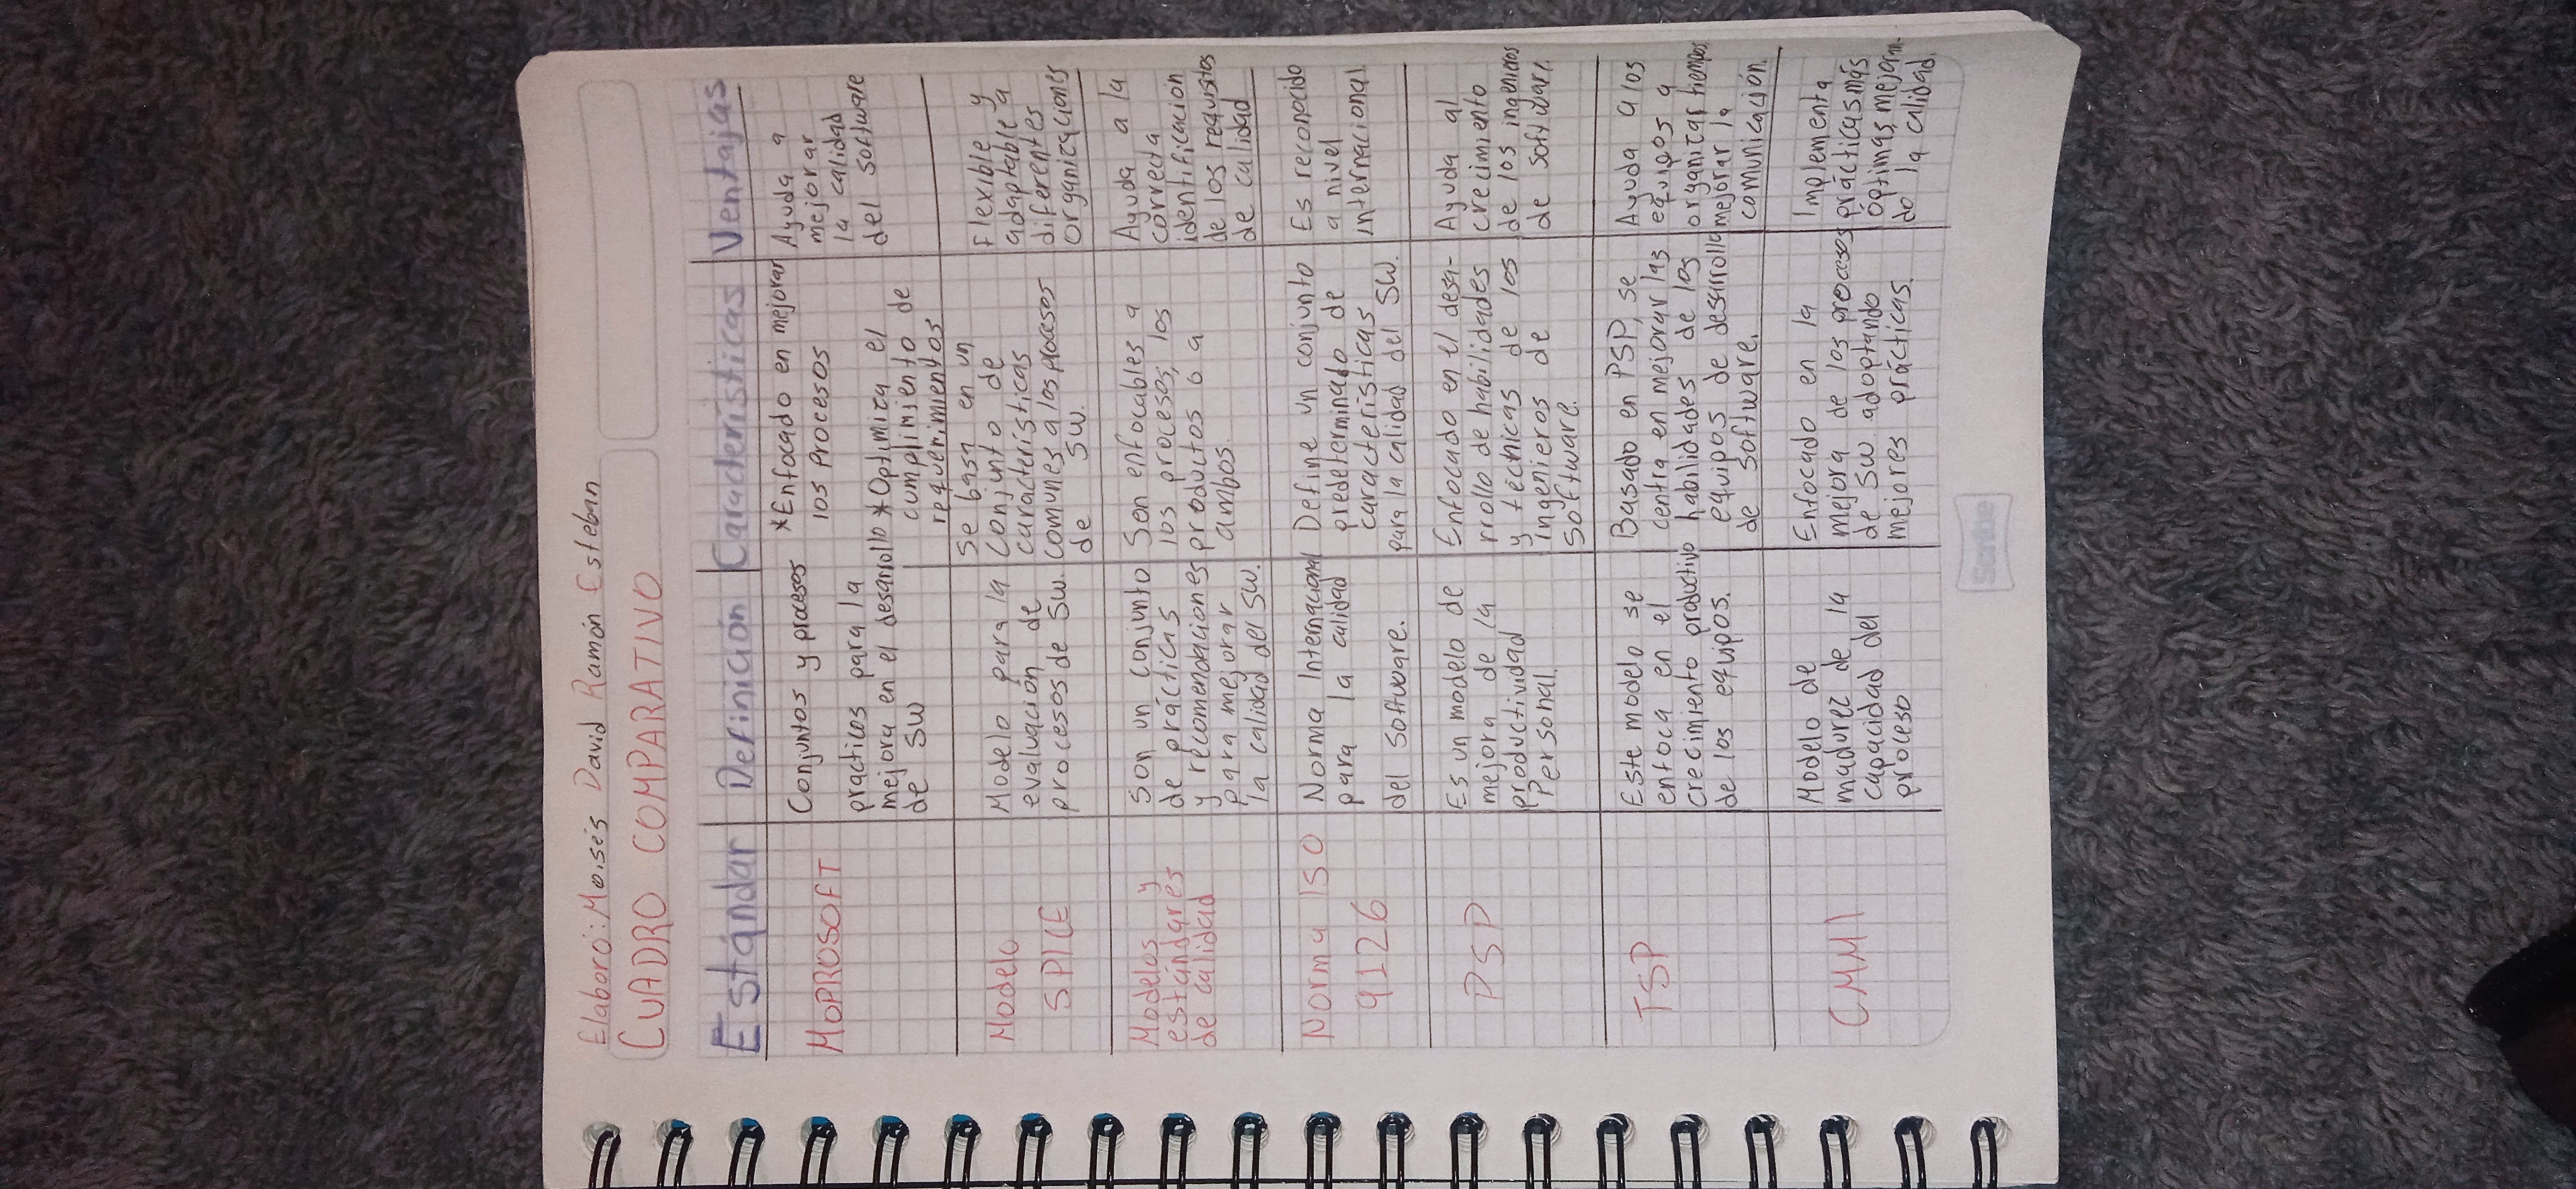 Elaboró: Moisés David Ramón Esteban
CUADRO COMPARATIVO
Estándar Definición Características Ventajas
MOPROSOFT
Conjuntos y procesos
practicos para la
mejora en el desarrollo
de SW
*Enfocado en mejorar
los procesos
*Optimiza el
cumplimiento de
requerimientos
Ayuda a
mejorar
la calidad
del software
Modelo
SPICE
Modelo para la
evaluación de
procesos de SW.
Se basa en un
conjunto de
características
comunes a los procesos
de SW.
Flexible y
adaptable a
diferentes
organizaciones
Modelos y
estándares
de calidad
Son un conjunto
de prácticas
y recomendaciones
para mejorar
la calidad del SW.
Son enfocables a
los procesos, los
productos o a
ambos.
Ayuda a la
correcta
identificación
de los requisitos
de calidad
Norma ISO
9126
Norma Internacional
para la calidad
del software.
Define un conjunto
predeterminado de
características
para la calidad del SW.
Es reconocido
a nivel
internacional.
PSP
Es un modelo de
mejora de la
productividad
Personal.
Enfocado en el desa-
rrollo de habilidades
y técnicas de los
ingenieros de
software.
Ayuda al
crecimiento
de los ingenieros
de software.
TSP
Este modelo se
enfoca en el
crecimiento productivo
de los equipos.
Basado en PSP, se
centra en mejorar las
habilidades de los
equipos de desarrollo
de software.
Ayuda a los
equipos a
organizar tiempos
mejorar la
comunicación.
CMMI
Modelo de
madurez de la
capacidad del
proceso
Enfocado en la
mejora de los procesos
de SW adoptando
mejores prácticas.
Implementa
prácticas más
óptimas, mejoran-
do la calidad.
Scribe